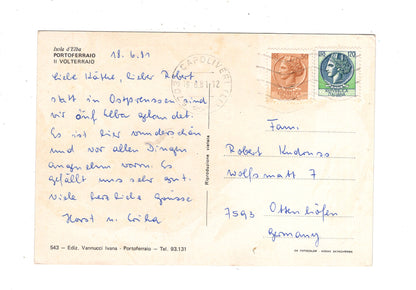 Isola d'Elba
PORTOFERRAIO
Il VOLTERRAIO
18.6.81
Liebe Käthe, lieber Robert
statt in Ostpreussen sind
wir auf Elba gelandet.
Es ist hier wunderschön
und vor allen Dingen
angenehm warm. Es
gefällt uns sehr gut.
Viele herzliche Grüsse
Horst u. Erika
Riproduzione vietata
CAPOLIVERI
Fam.
Robert
Wolfsmatt 7
7593 Ottenhöfen
Germany
543 - Ediz. Vannucci Ivana - Portoferraio - Tel. 93.131